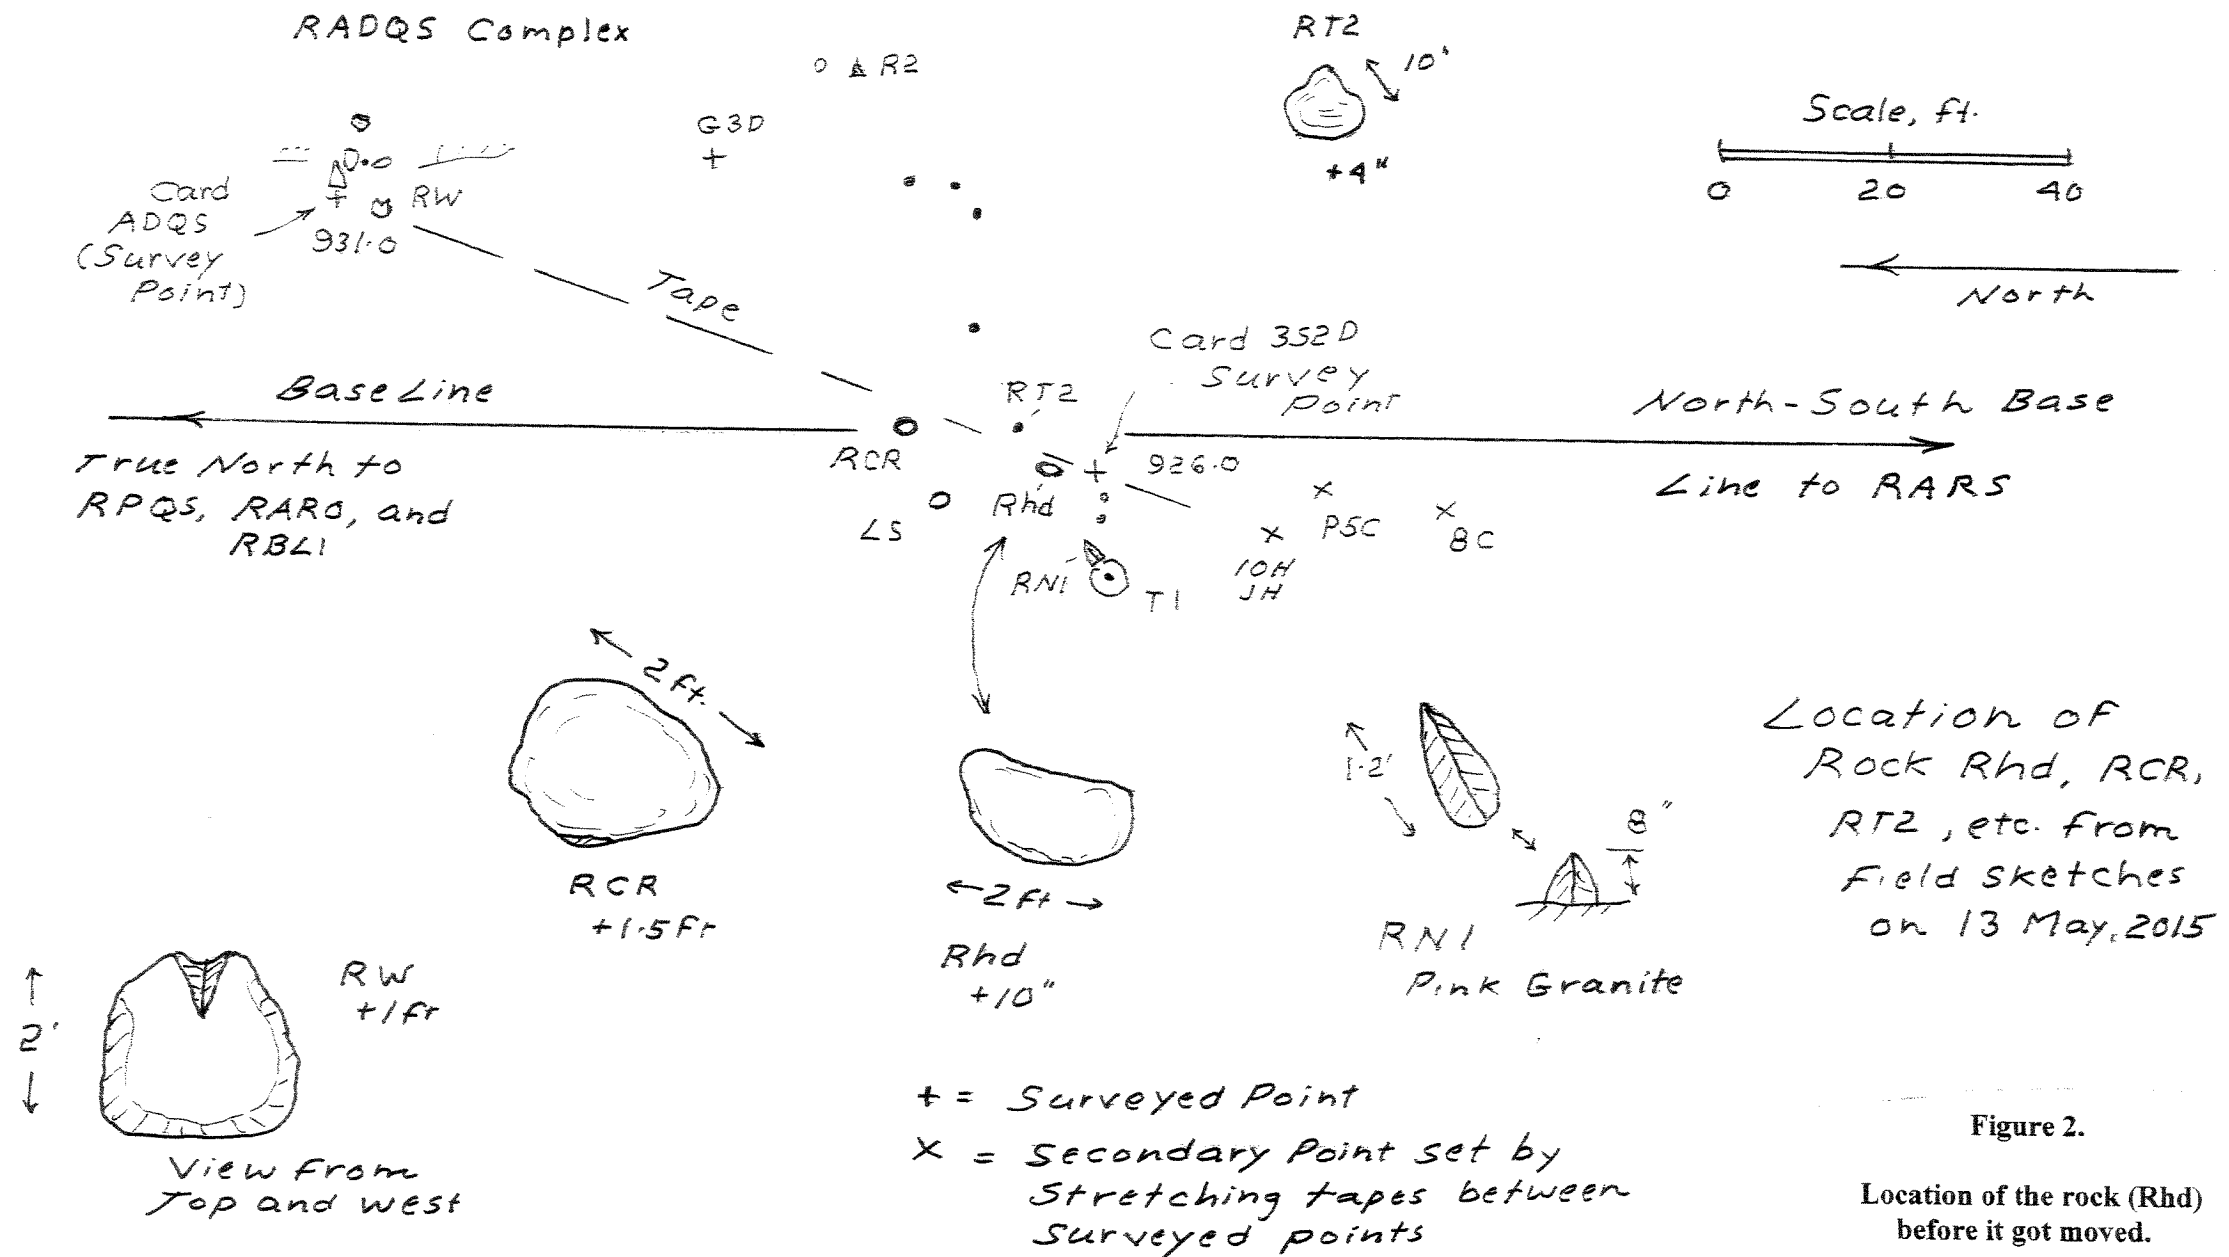 RADQS Complex
R2
G3D
+
RT2
10'
+4"
Scale, ft.
0 20 40
North
Card
ADQS
(Survey
Point)
+
RW
931.0
Tape
Card 352D
Survey
Point
Base Line
True North to
RPQS, RARO, and
RBL1
RCR
RT2
LS
Rhd
+
926.0
North-South Base
Line to RARS
RN1
T1
x
10H
JH
x
P5C
x
8C
2 ft.
RCR
+1.5 Ft
←2 ft→
Rhd
+10"
1.2'
8"
RN1
Pink Granite
Location of
Rock Rhd, RCR,
RT2, etc. from
Field sketches
on 13 May, 2015
2'
RW
+1 ft
View from
Top and west
+ = Surveyed Point
x = Secondary Point set by
Stretching tapes between
Surveyed points
Figure 2.
Location of the rock (Rhd)
before it got moved.